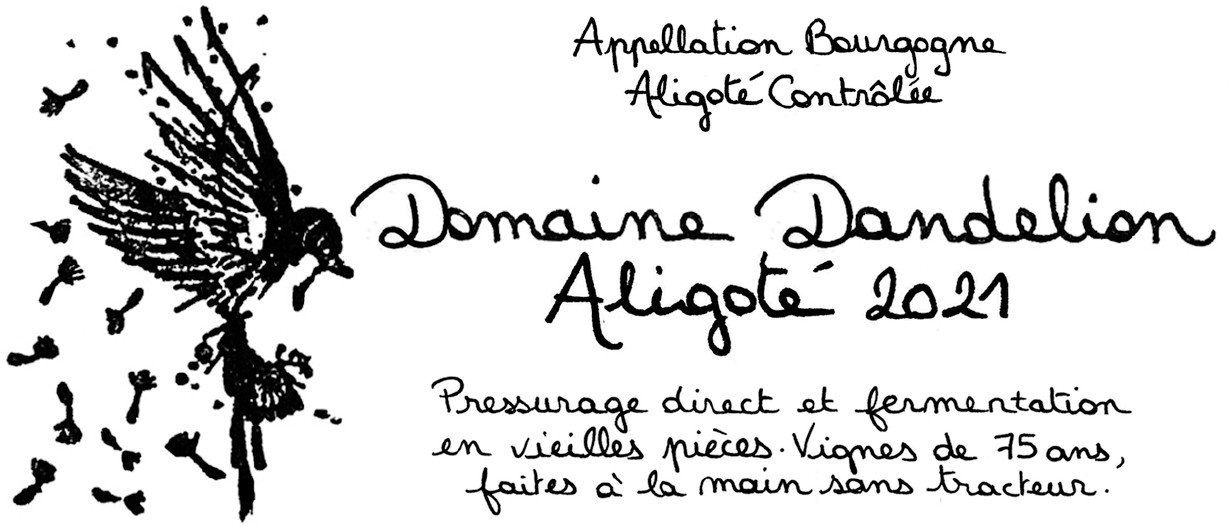 Appellation Bourgogne
Aligoté Contrôlée
Domaine Dandelion
Aligoté 2021
Pressurage direct et fermentation
en vieilles pièces. Vignes de 75 ans,
faites à la main sans tracteur.